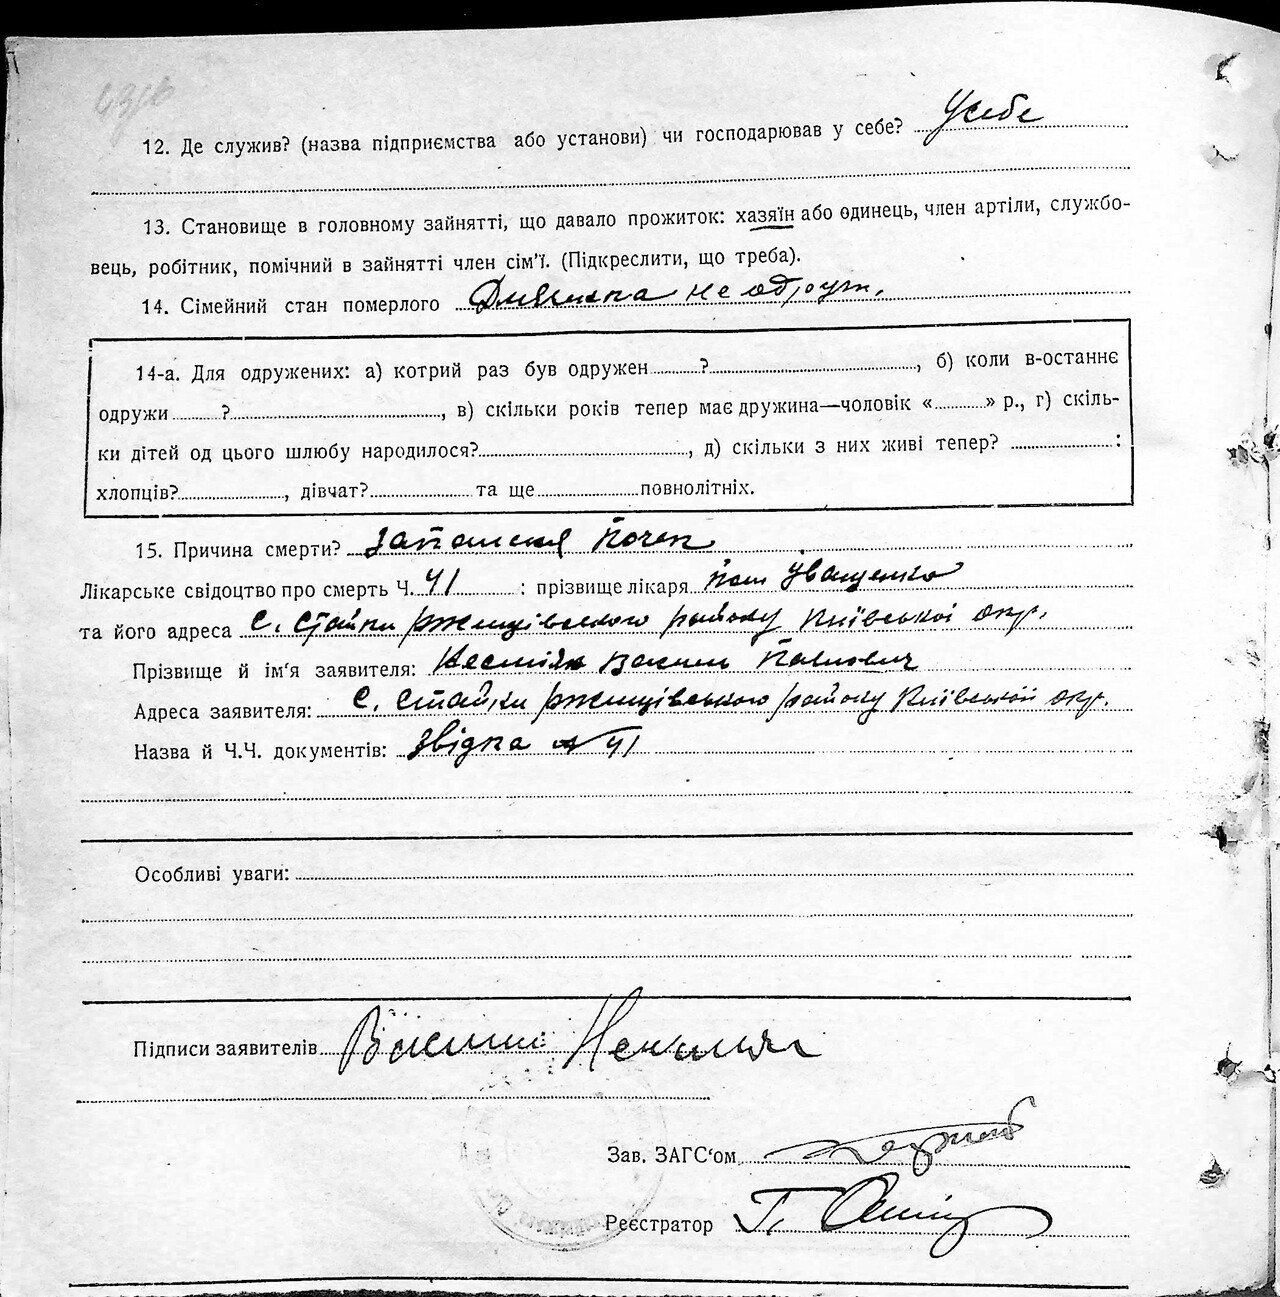 12. Де служив? (назва підприємства або установи) чи господарював у себе? У себе
13. Становище в головному зайнятті, що давало прожиток: хазяїн або одинець, член артіли, службо-
вець, робітник, помічний в зайнятті член сім'ї. (Підкреслити, що треба).
14. Сімейний стан померлого не одруж.
14-а. Для одружених: а) котрий раз був одружен ? , б) коли в-останнє
одружи ? , в) скільки років тепер має дружина—чоловік « » р., г) скіль-
ки дітей од цього шлюбу народилося? , д) скільки з них живі тепер? :
хлопців? , дівчат? та ще повнолітніх.
15. Причина смерти? Запалення почек
Лікарське свідоцтво про смерть Ч. 41 : прізвище лікаря Іващенко
та його адреса С. Стайки Ржищівського району Київської окр.
Прізвище й ім'я заявителя: Василь Павлович
Адреса заявителя: С. Стайки Ржищівського району Київської окр.
Назва й Ч.Ч. документів: Звідка № 41
Особливі уваги:
Підписи заявителів Василь
Зав. ЗАГС'ом
Реєстратор Г.